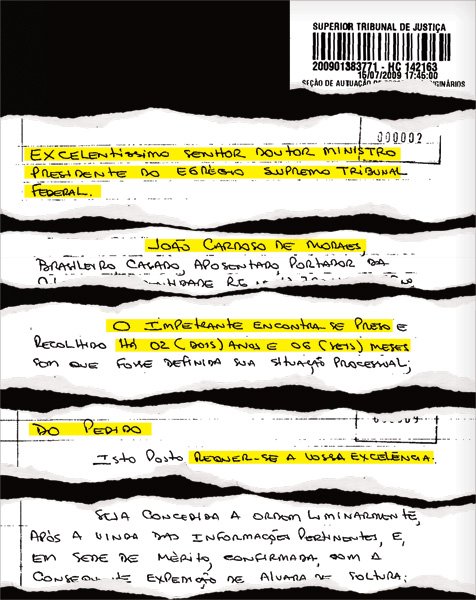 SUPERIOR TRIBUNAL DE JUSTIÇA
200901383771 - HC 142163
16/07/2009 17:45:00
SEÇÃO DE AUTUAÇÃO DE
000002
EXCELENTÍSSIMO SENHOR DOUTOR MINISTRO
PRESIDENTE DO EGRÉGIO SUPREMO TRIBUNAL
FEDERAL.
JOÃO CARDOSO DE MORAES,
BRASILEIRO CASADO, APOSENTADO, PORTADOR DA
O IMPETRANTE ENCONTRA-SE PRESO E
RECOLHIDO HÁ 02 (DOIS) ANOS E 06 (SEIS) MESES
SEM QUE FOSSE DEFINIDA SUA SITUAÇÃO PROCESSUAL;
DO PEDIDO
ISTO POSTO REQUER-SE A VOSSA EXCELÊNCIA.
SEJA CONCEDIDA A ORDEM LIMINARMENTE,
APÓS A VINDA DAS INFORMAÇÕES PERTINENTES, E,
EM SEDE DE MÉRITO, CONFIRMADA, COM A
EXPEDIÇÃO DE ALVARA DE SOLTURA;